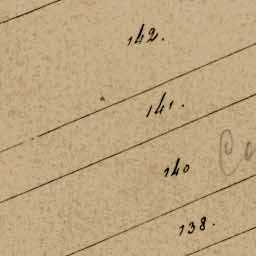 142.
141.
140
138.